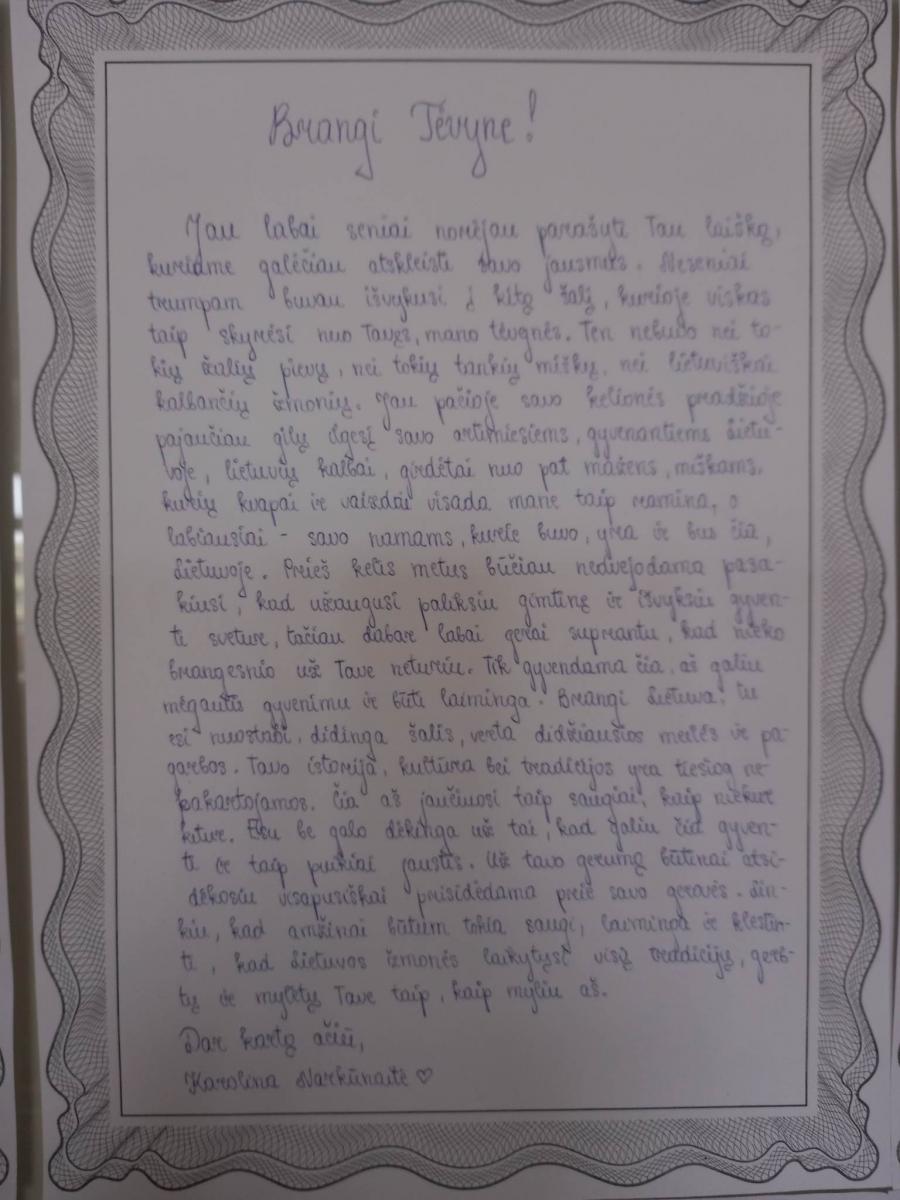 Brangi Tėvyne!
Jau labai seniai norėjau parašyti Tau laišką,
kuriame galėčiau atskleisti savo jausmus. Neseniai
trumpam buvau išvykusi į kitą šalį, kurioje viskas
taip skyrėsi nuo Tavęs, mano tėvynės. Ten nebuvo nei to-
kių žalių pievų, nei tokių tankių miškų, nei lietuviškai
kalbančių žmonių. Jau pačioje savo kelionės pradžioje
pajaučiau gilų ilgesį savo artimiesiems, gyvenantiems Lietu-
voje, lietuvių kalbai, girdėtai nuo pat mažens, miškams,
kurių kvapai ir vaizdai visada mane taip ramina, o
labiausiai - savo namams, kurie buvo, yra ir bus čia,
Lietuvoje. Prieš kelis metus būčiau nedvejodama pasa-
kiusi, kad užaugusi paliksiu gimtinę ir išvyksiu gyven-
ti svetur, tačiau dabar labai gerai suprantu, kad nieko
brangesnio už Tave neturiu. Tik gyvendama čia, aš galiu
mėgautis gyvenimu ir būti laiminga. Brangi Lietuva, tu
esi nuostabi, didinga šalis, verta didžiausios meilės ir pa-
garbos. Tavo istorija, kultūra bei tradicijos yra tiesiog ne-
pakartojamos. Čia aš jaučiuosi taip saugiai, kaip niekur
kitur. Esu be galo dėkinga už tai, kad galiu čia gyven-
ti ir taip puikiai jaustis. Už tavo gerumą būtinai atsi-
dėkosiu visapusiškai prisidėdama prie savo gerovės. Lin-
kiu, kad amžinai būtum tokia saugi, laiminga ir klestin-
ti, kad Lietuvos žmonės laikytųsi visų tradicijų, gerb-
tų ir mylėtų Tave taip, kaip myliu aš.
Dar kartą ačiū,
Karolina Narkūnaitė ♡